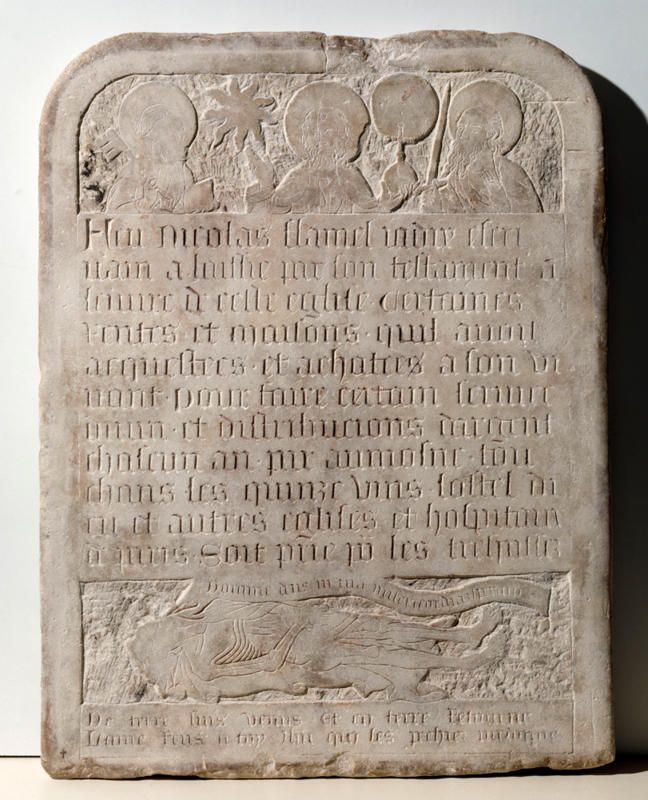 Feu Nicolas flamel iadix escri
uain a laissie par son testament a
leuure de ceste eglise certaines
rentes et maisons · quil auoit
acquestees · et achatees a son vi
uant · pour faire certain seruice
diuin · et distribucions dargent
chascun an · par aumosne · tou
chans les quinze vins · lostel di
eu et autres eglises et hospitaux
de paris · Soit prie pour les trespassez
domine deus in tua misericordia speraui
De terre suis venus et en terre retourne
Lame rens a toy ihu qui les pechiez pardonne